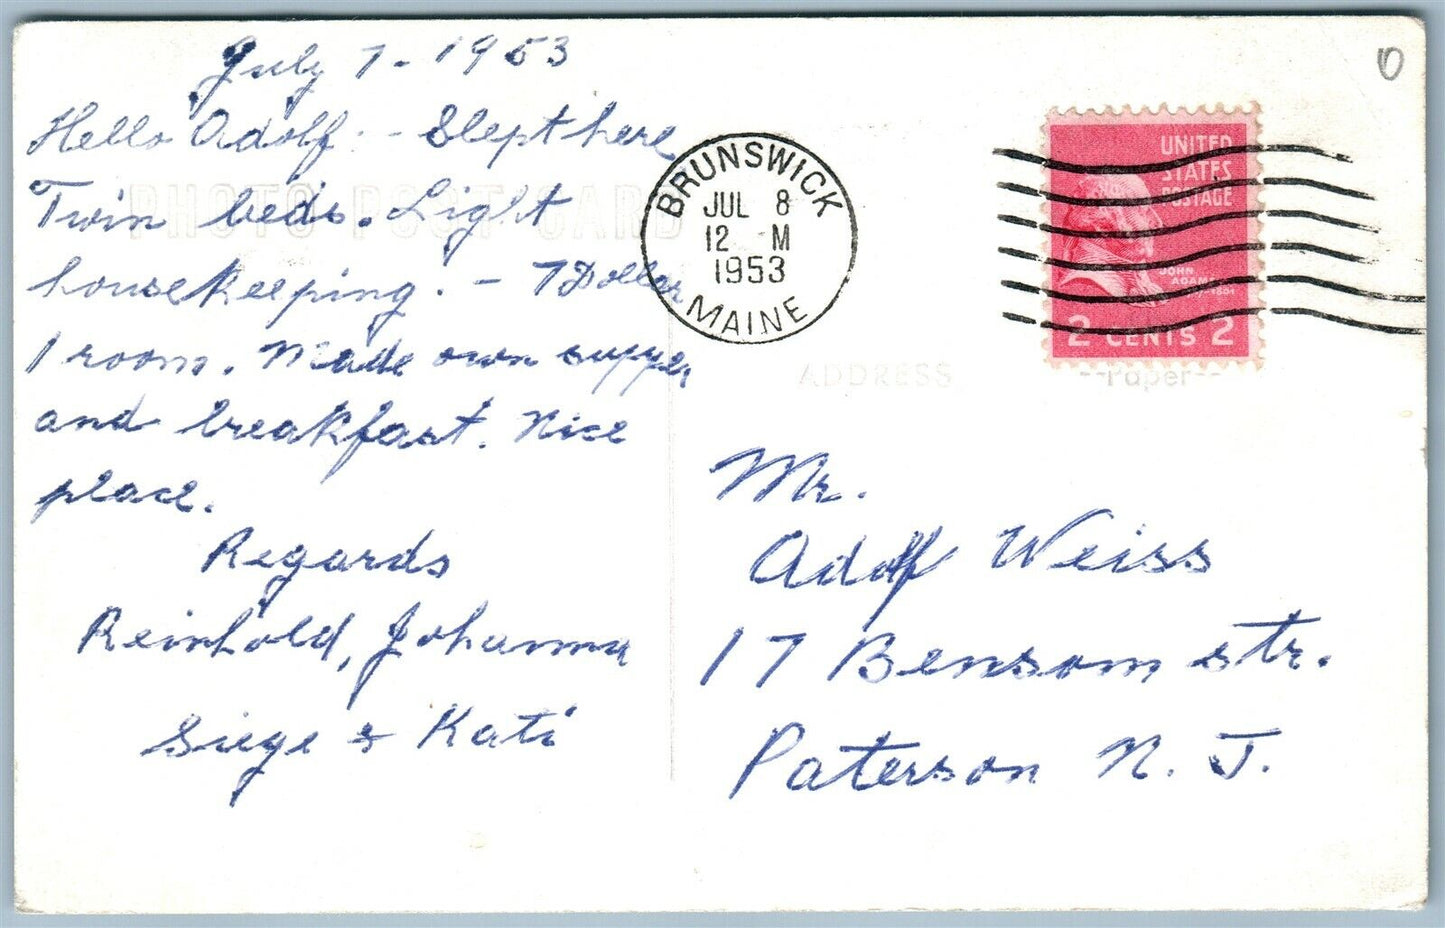 July 7 - 1953
Hello Adolf. - Slept here
Twin beds. Light
housekeeping. - 7 Dollar
1 room. Made own supper
and breakfast. Nice
place.
Regards
Reinhold, Johanna
Siege & Kati
PHOTO POST CARD
BRUNSWICK
JUL 8
12 M
1953
MAINE
UNITED
STATES
POSTAGE
JOHN
ADAMS
2 CENTS 2
ADDRESS
--Paper--
Mr.
Adolf Weiss
17 Benson str.
Paterson N. J.
0